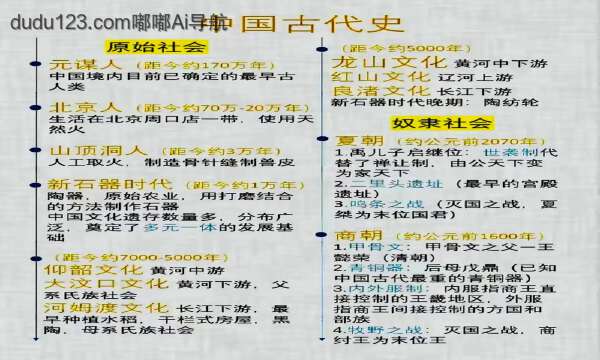 dudu123.com嘟嘟Ai导航
中国古代史
原始社会
元谋人（距今约170万年）
中国境内目前已确定的最早古
人类
北京人（距今约70万-20万年）
生活在北京周口店一带，使用天
然火
山顶洞人（距今约3万年）
人工取火，制造骨针缝制兽皮
新石器时代（距今约1万年）
陶器，原始农业，用打磨结合
的方法制作石器
中国文化遗存数量多，分布广
泛，奠定了多元一体的发展基
础
（距今约7000-5000年）
仰韶文化 黄河中游
大汶口文化 黄河下游，父
系氏族社会
河姆渡文化 长江下游，最
早种植水稻，干栏式房屋，黑
陶，母系氏族社会
（距今约5000年）
龙山文化 黄河中下游
红山文化 辽河上游
良渚文化 长江下游
新石器时代晚期：陶纺轮
奴隶社会
夏朝（约公元前2070年）
1.禹儿子启继位：世袭制代
替了禅让制，由公天下变
为家天下
2.二里头遗址（最早的宫殿
遗址）
3.鸣条之战（灭国之战，夏
桀为末位国君）
商朝（约公元前1600年）
1.甲骨文：甲骨文之父—王
懿荣（清朝）
2.青铜器：后母戊鼎（已知
中国古代最重的青铜器）
3.内外服制：内服指商王直
接控制的王畿地区，外服
指商王间接控制的方国和
部族
4.牧野之战：灭国之战，商
纣王为末位王